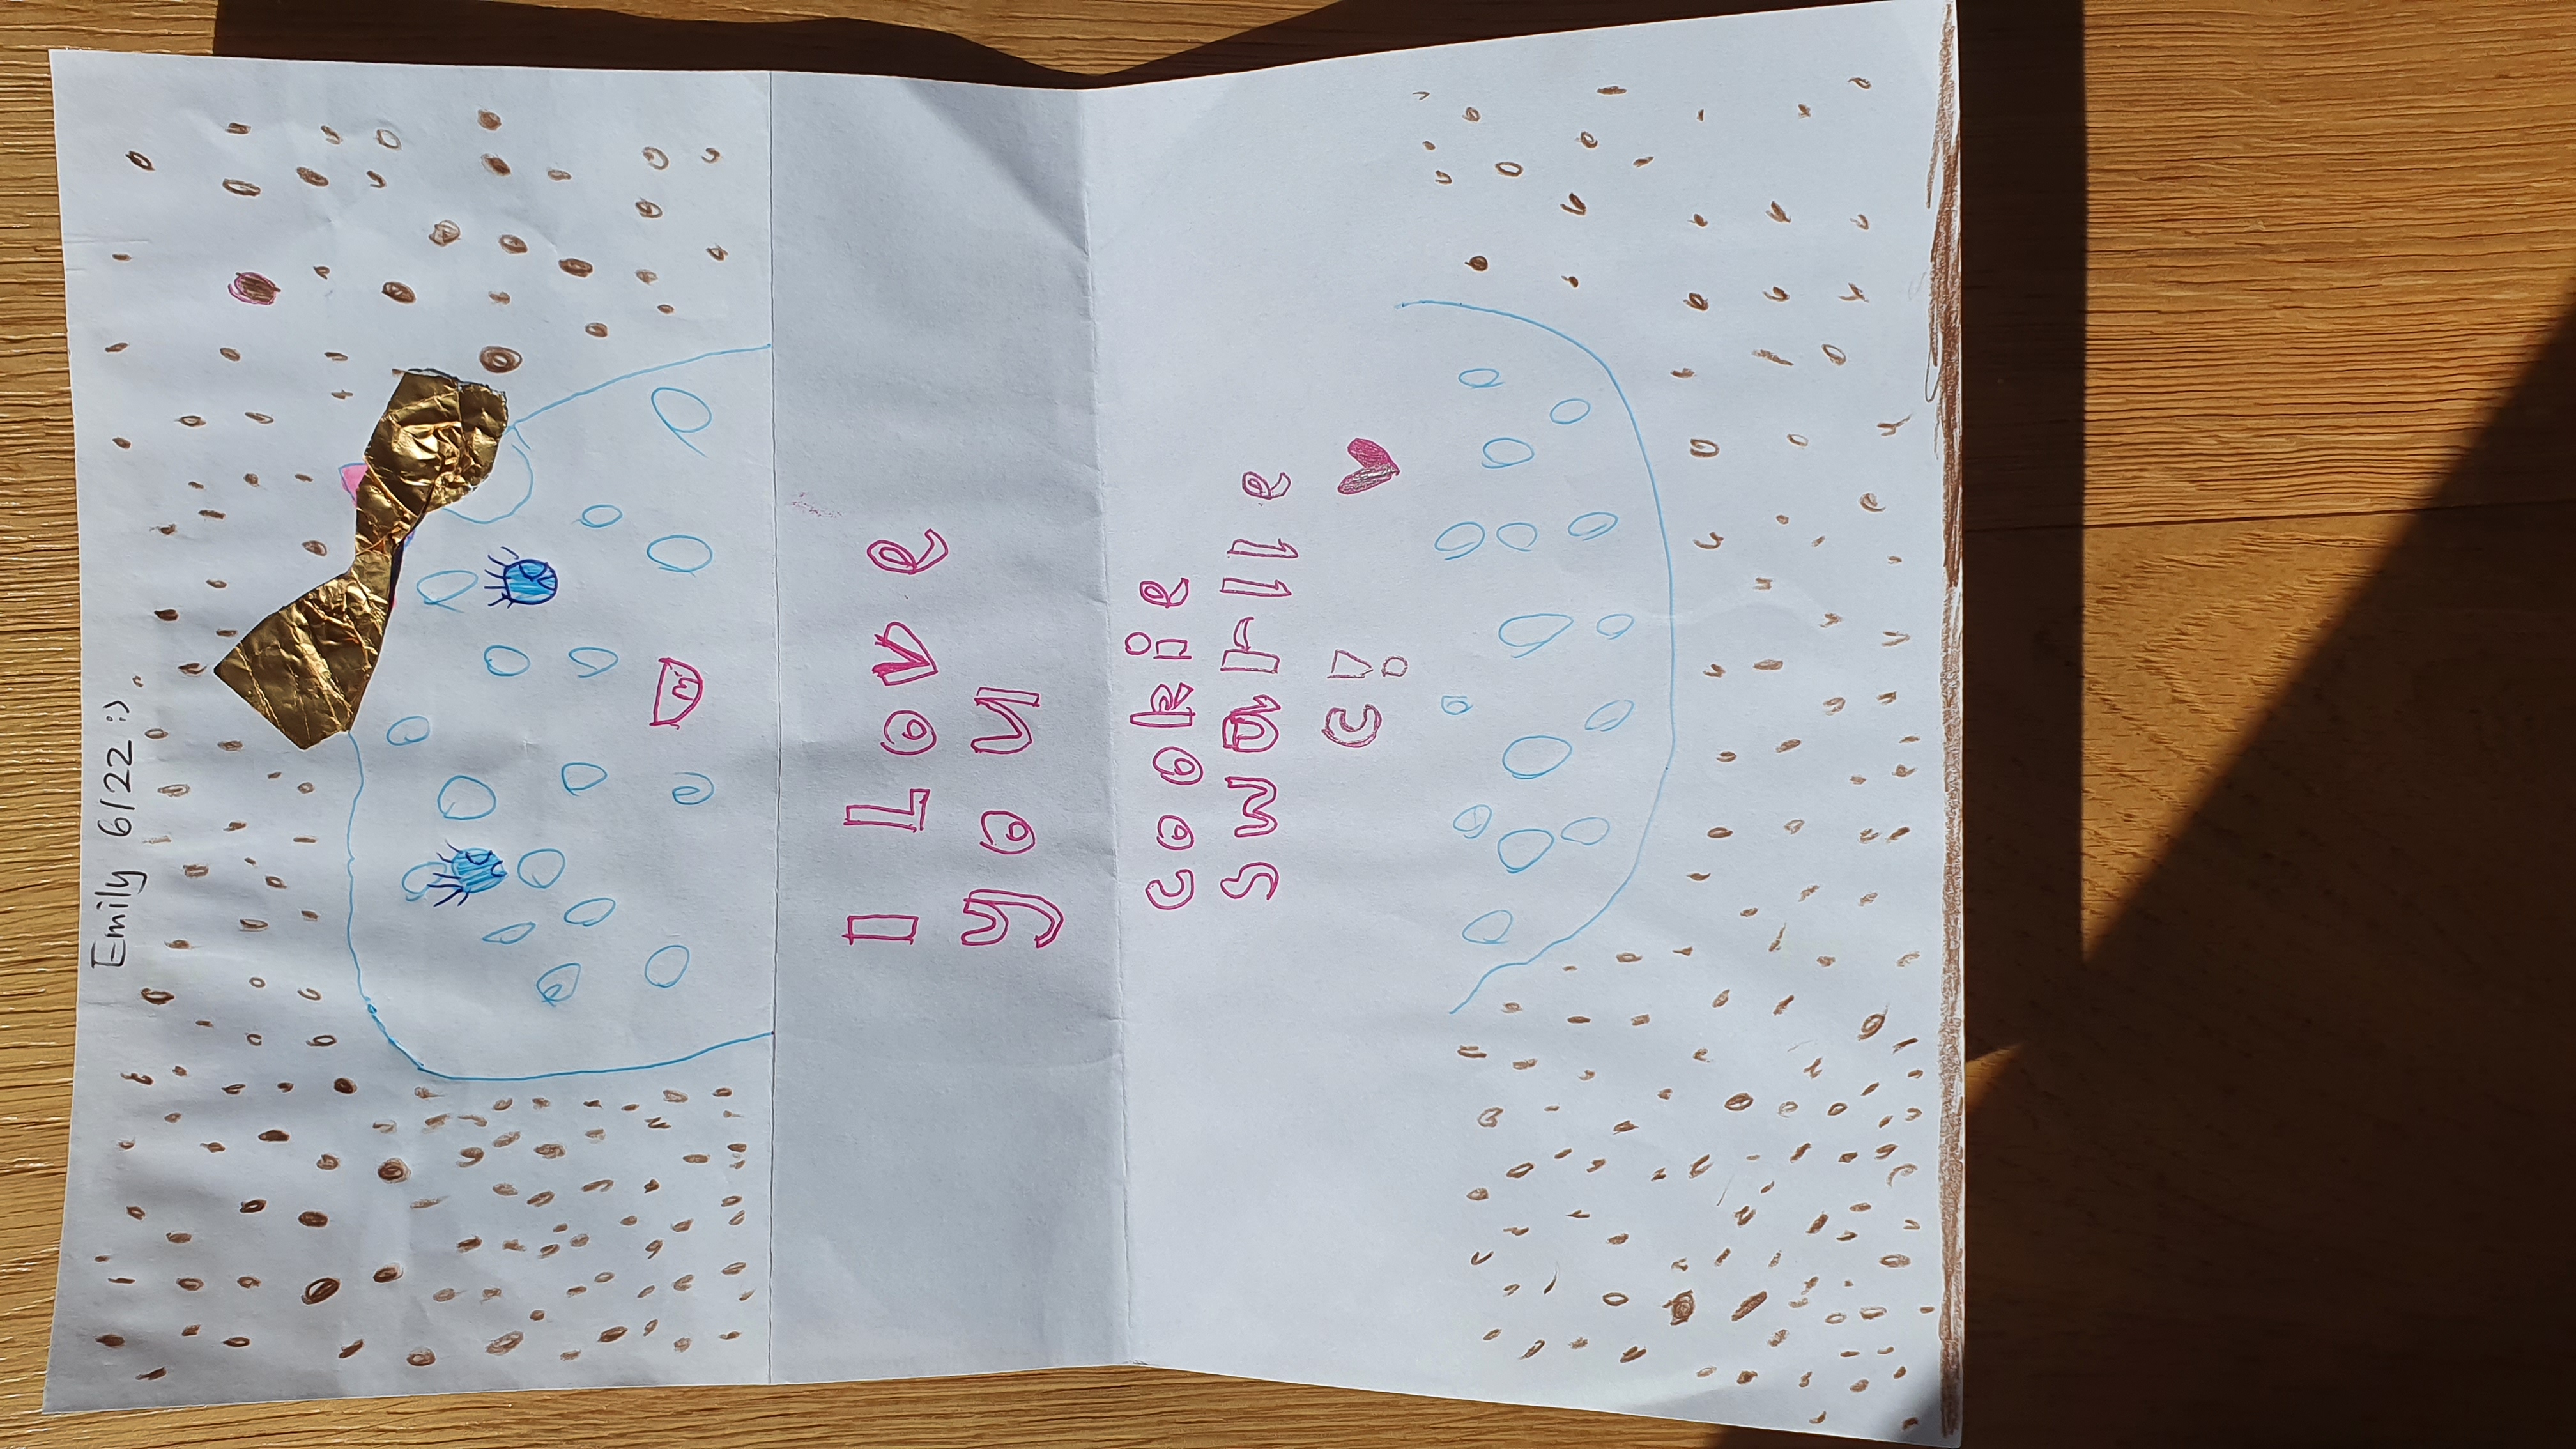 Emily 6/22 :)
I Love
you
cookie
swarlle
C!